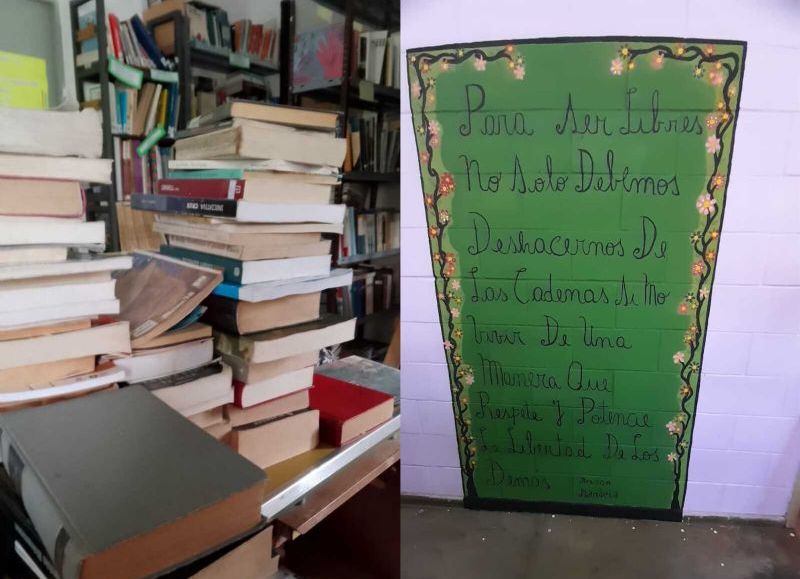 INICIATIVA
Para Ser Libres
No Solo Debemos
Deshacernos De
Las Cadenas Si No
Vivir De Una
Manera Que
Respete Y Potencie
La Libertad De Los
Demas
Nelson
Mandela